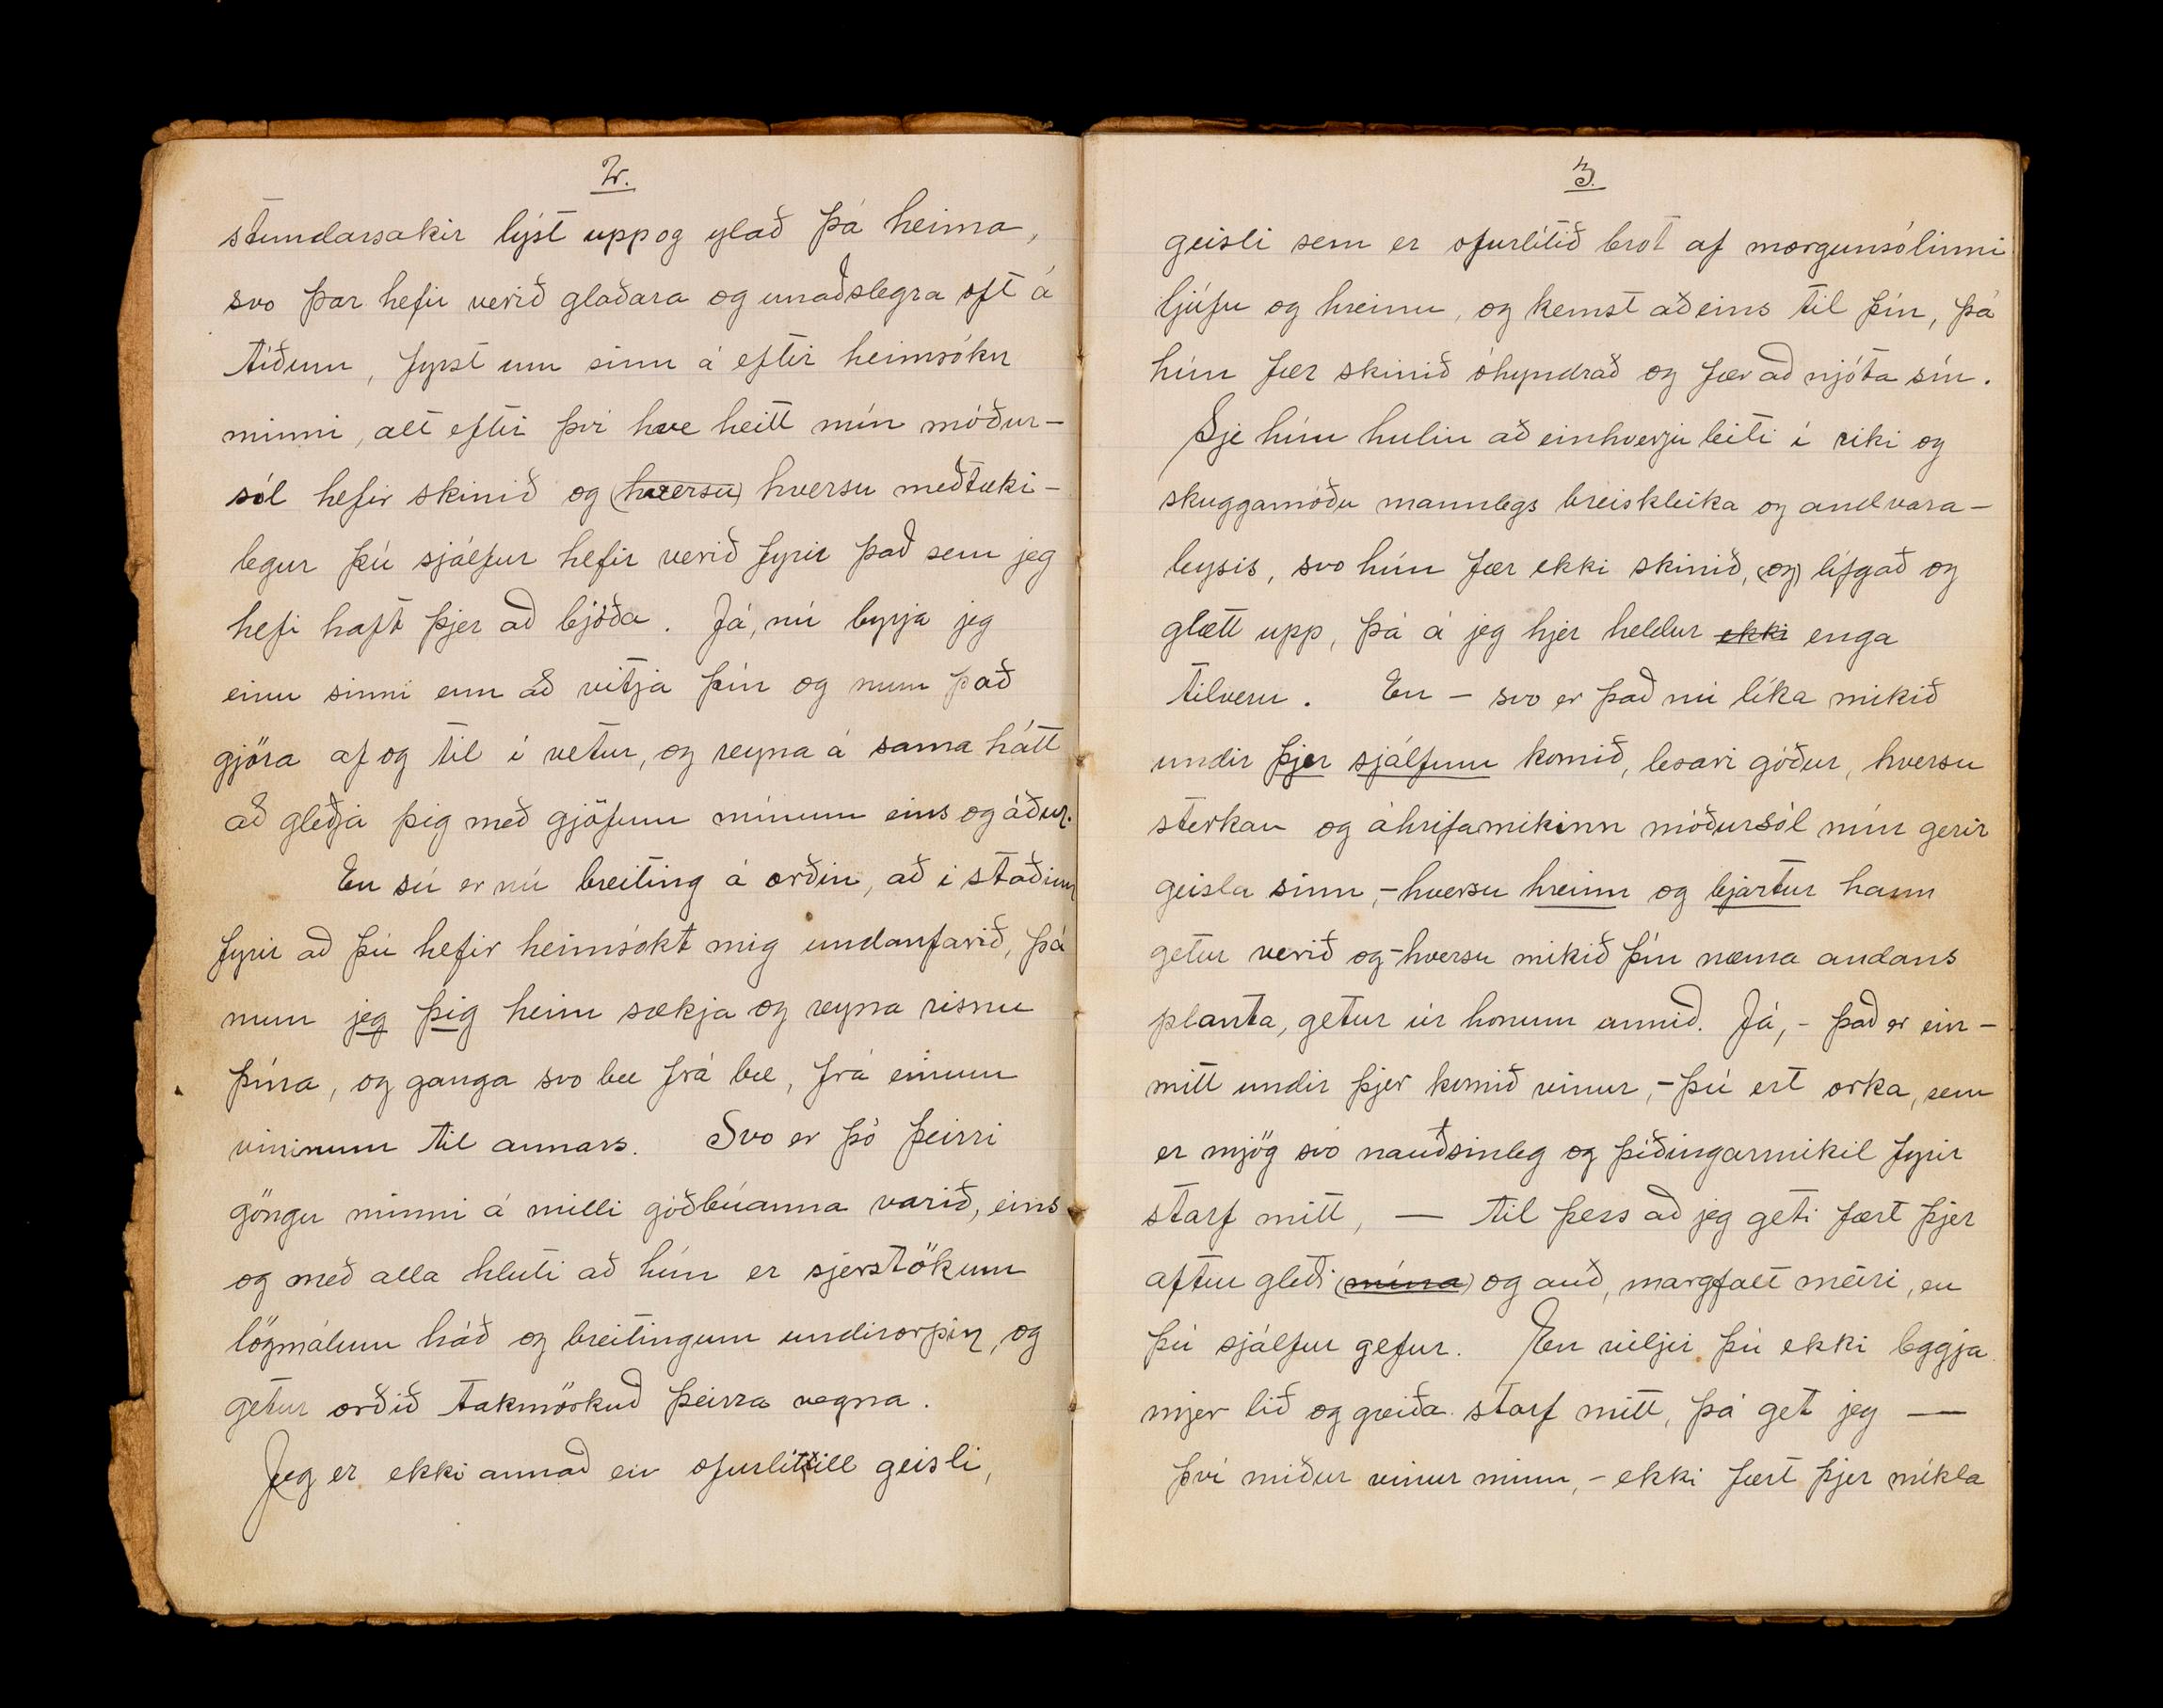 2.
stundarsakir lýst upp og ylað þá heima,
svo þar hefir verið glaðara og unaðslegra oft á
tíðum, fyrst um sinn á eftir heimsókn
minni, alt eftir því hve heitt mín móður-
sól hefir skinið og (hversu) hversu meðtæki-
legur þú sjálfur hefir verið fyrir það sem jeg
hefi haft þjer að bjóða. Já, nú byrja jeg
einu sinni enn að vitja þín og mun það
gjöra af og til í vetur, og reyna á sama hátt
að gleðja þig með gjöfum mínum eins og áður.
En sú er nú breiting á orðin, að í staðinn
fyrir að þú hefir heimsókt mig undanfarið, þá
mun jeg þig heim sækja og reyna risnu
þína, og ganga svo bæ frá bæ, frá einum
vininum til annars. Svo er þó þeirri
göngu minni á milli góðbúanna varið, eins
og með alla hluti að hún er sjerstökum
lögmálum háð og breitingum undirorpin, og
getur orðið takmörkuð þeirra vegna.
Jeg er ekki annað en ofurlítill geisli,
3.
geisli sem er ofurlítið brot af morgunsólinni
ljúfu og hreinu, og kemst aðeins til þín, þá
hún fær skinið óhyndrað og fær að njóta sín.
Sje hún hulin að einhverju leiti í reiki og
skuggamóðu mannlegs breiskleika og andvara-
leysis, svo hún fær ekki skinið, (og) lífgað og
glætt upp, þá á jeg hjer heldur ekki enga
tilveru. En - svo er það nú líka mikið
undir þjer sjálfum komið, lesari góður, hversu
sterkan og áhrifamikinn móðursól mín gerir
geisla sinn, - hversu hreinn og bjartur hann
getur verið og - hversu mikið þín næma andans
planta, getur úr honum unnið. Já, - það er ein-
mitt undir þjer komið vinur, - þú ert orka, sem
er mjög svo nauðsinleg og þíðingarmikil fyrir
starf mitt, — til þess að jeg geti fært þjer
aftur gleði (mína) og auð, margfalt meiri, en
þú sjálfur gefur. En viljir þú ekki leggja
mjer lið og greiða starf mitt, þá get jeg —
því miður vinur minn, - ekki fært þjer mikla